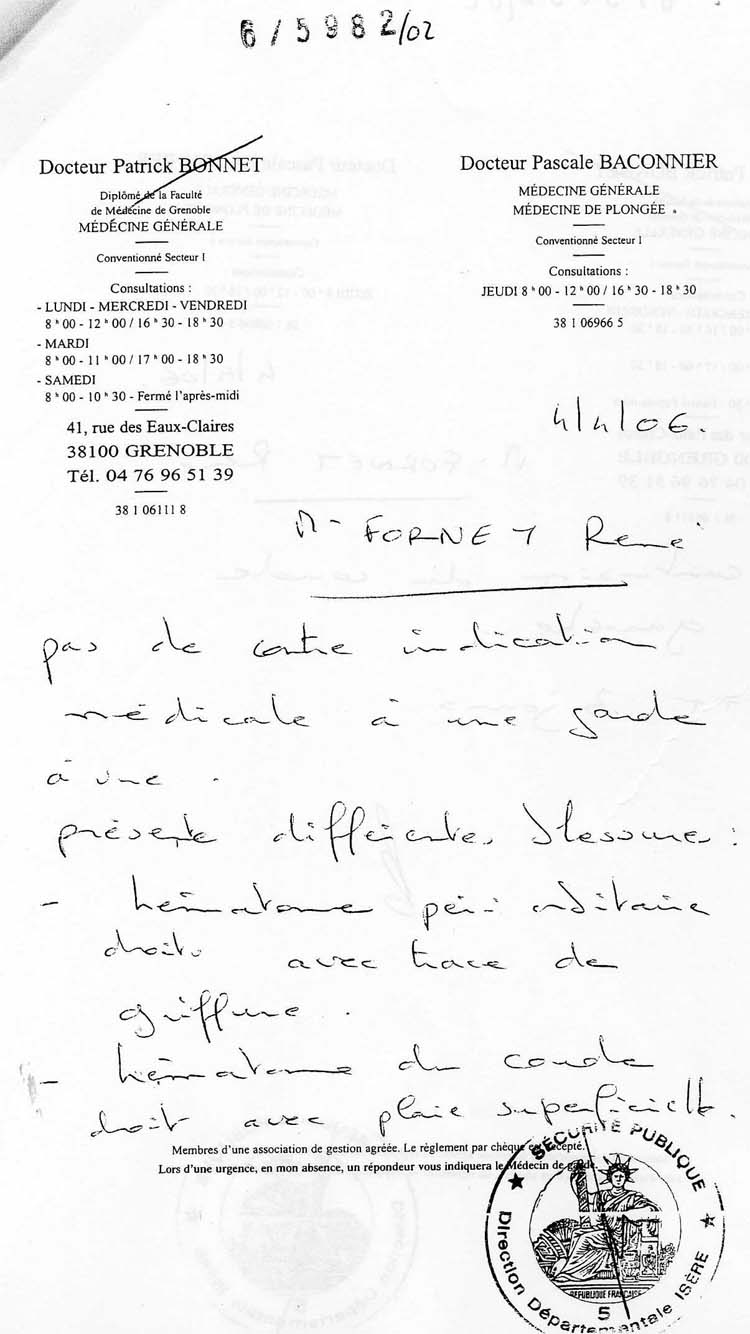 6/5982/02
Docteur Patrick BONNET
Diplômé de la Faculté
de Médecine de Grenoble
MÉDECINE GÉNÉRALE
Conventionné Secteur I
Consultations :
- LUNDI - MERCREDI - VENDREDI
8 h 00 - 12 h 00 / 16 h 30 - 18 h 30
- MARDI
8 h 00 - 11 h 00 / 17 h 00 - 18 h 30
- SAMEDI
8 h 00 - 10 h 30 - Fermé l'après-midi
41, rue des Eaux-Claires
38100 GRENOBLE
Tél. 04 76 96 51 39
38 1 06111 8
Docteur Pascale BACONNIER
MÉDECINE GÉNÉRALE
MÉDECINE DE PLONGÉE
Conventionné Secteur I
Consultations :
JEUDI 8 h 00 - 12 h 00 / 16 h 30 - 18 h 30
38 1 06966 5
4/4/06.
Mr FORNEY René
pas de contre indication
médicale à une garde
à vue.
présente différentes blessures :
- hématome péri orbitaire
droit avec trace de
griffure.
- hématome du coude
droit avec plaie superficielle.
Membres d'une association de gestion agréée. Le règlement par chèque est accepté.
Lors d'une urgence, en mon absence, un répondeur vous indiquera le Médecin de garde.
SÉCURITÉ PUBLIQUE
REPUBLIQUE FRANCAISE
5
Direction Départementale ISÈRE